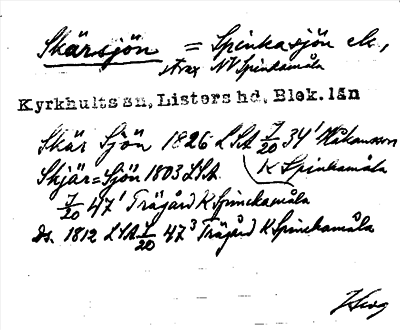 Skärsjön = Spinkasjön ek.,
strax NV Spinkamåla
Kyrkhults sn, Listers hd, Blek. län
Skär Sjön 1826 LSA 7/20 34' Håkansson
K Spinkamåla
Skjär=Sjön 1803 LSA
7/20 47' Trägård K Spinckamåla
Ds. 1812 LSA 7/20 47³ Trägård K Spinckamåla